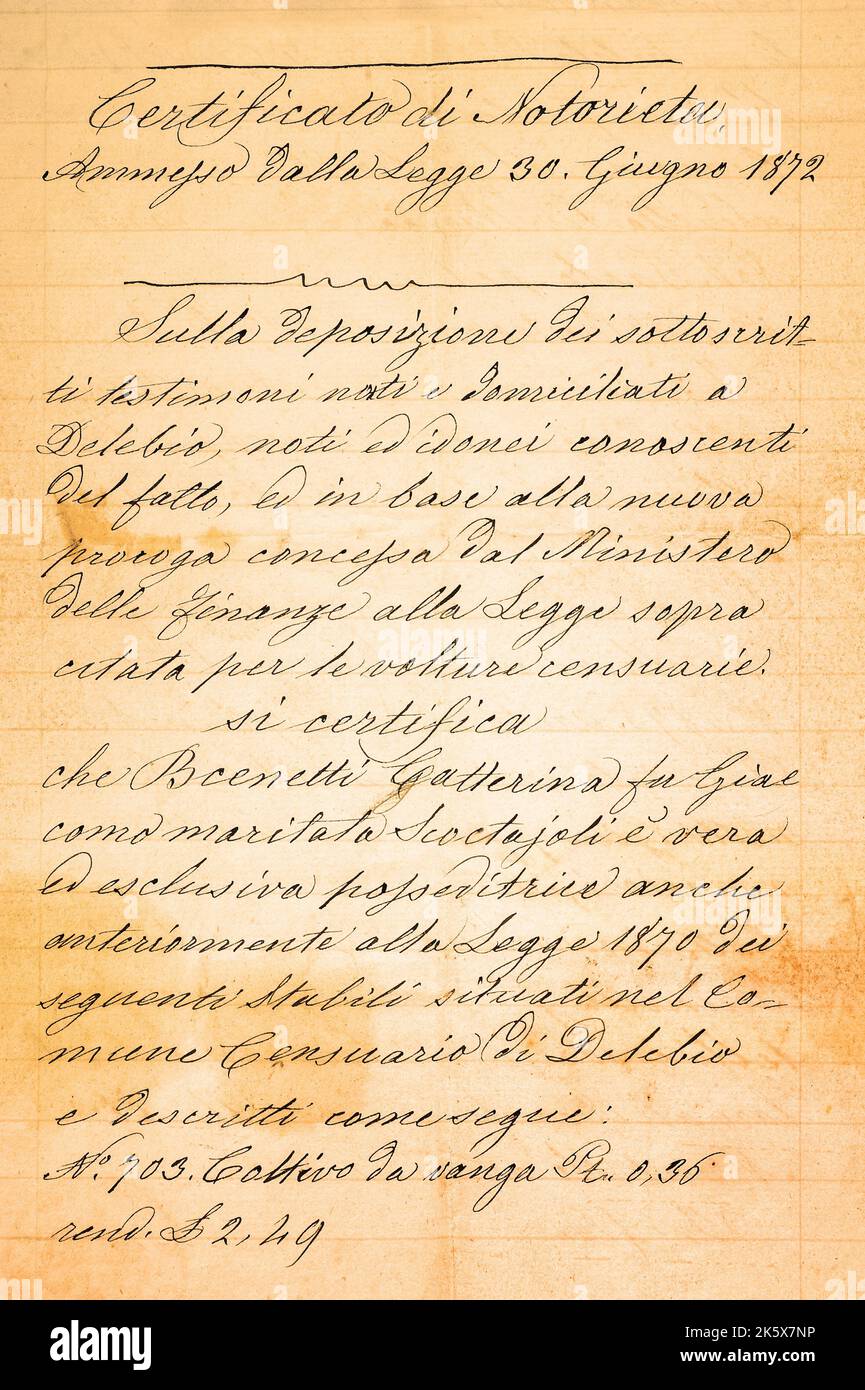 Certificato di Notorieta,
Ammesso dalla Legge 30. Giugno 1872
Sulla deposizione dei sottoscrit-
ti testimoni nati e domiciliati a
Delebio, noti ed idonei conoscenti
del fatto, ed in base alla nuova
proroga concessa dal Ministero
delle finanze alla Legge sopra
citata per le volture censuarie.
si certifica
che Catterina fu Giac
como maritata è vera
ed esclusiva posseditrice anche
anteriormente alla Legge 1870 dei
seguenti Stabili situati nel Co-
mune Censuario di Delebio
e descritti come segue:
N.º 703. Coltivo da vanga Pt. 0,36
rend. £ 2,49
alamy
Image ID: 2K5X7NP
www.alamy.com